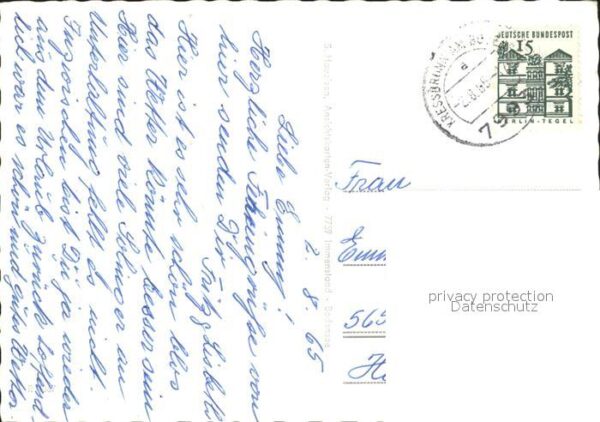 2. 8. 65
Liebe Emmy!
Herzliche Feriengrüße von
hier senden Dir
Fritz & Liesel
Hier ist es sehr schön blos
das Wetter könnte besser sein
Hier sind viele Schwaben an
Unterhaltung fehlt es nicht.
Inzwischen bist Du ja wieder
aus dem Urlaub zurück hoffent-
lich war es schön und gutes Wetter.
S. Ansichtskarten-Verlag - 7759 Immenstaad - Bodensee
DEUTSCHE BUNDESPOST
15
BERLIN-TEGEL
KRESSBRONN
a
799
Frau
Emm
565
H
privacy protection
Datenschutz